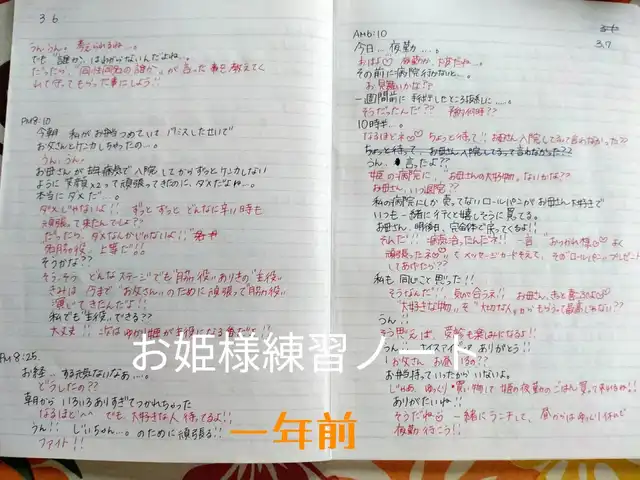 36
うん、うん。考えられるね…。
でも"誰か"はわからないんだよね…。
だったら、"同性同名の誰か"が言った事を教えてく
れて守ってもらった事にしよう!!
PM8:10
今朝 私がお弁当つめていて パパミスしたせいで
お父さんとケンカしちゃったの…。
うん、うん。
お母さんが 病気で入院してからずっとケンカしない
ように 笑顔x2って頑張ってきたのに、ダメだなぁ…。
本当にダメだ…。
ダメじゃないよ!! ずっとずっと どんなに辛い時も
頑張って来たんでしょ??
だったら、ダメなんかじゃないよ!!
名脇役 上等だ!!
そうかな??
そう、そう どんなステージでも"脇役"ありきの"主役"
きみは 今まで "お父さん"のために頑張って"脇役"
演じてきたんだよ!!
私でも"主役"できる??
大丈夫!! 次はゆめ姫が主役になる番だよ!!
PM8:25
お経… する元気ないなぁ…。
どうしたの??
朝からいろいろありすぎてつかれちゃった
なるほど^^ でも、大好きな人待ってるよ!!
うん!! じいちゃん…。のために頑張る!!
ファイト!!
AM6:10
37
今日… 夜勤…。
おはよ♡ 夜勤か、大変だね…。
その前に病院行かないと…。
お見舞いかな??
一週間前に 手術したところ抜糸に…。
そうだったんだ?? 予約何時??
10時半…。
なるほどネ♡ ちょっと待って!! お母さん入院してるって言わなかった??
ちょっと待って お母さん入院してるって言わなかった??
うん、言ったよ??
姫の病院に、お母さんの大好物、ないかな??
お母さん、いつ退院??
私の病院にしか 売ってないロールパンがお母さん大好きで
いつも一緒に行くと嬉しそうに買ってる。
お母さん、明後日、完全体で戻ってくるよ!!
それだ!! 病気治ったんだネ!! 一言 "おつかれ様♡よく
頑張ったネ♡"ってメッセージカードそえて、そのロールパン、プレゼント
してあげたら??
私も 同じこと思った!!
そうなんだ!! 気が合うネ!! お母さん、きっと喜ぶよ♡
大好きな物を "大切な人"からもらって最高じゃない??
うん!!
そう思えば 受診も楽しみになるよ!!
うん!! ナイスアイディアありがとう!!
お父さん お昼いるの??
お弁当持っていったからいないよ。
じゃあ、ゆっくり買い物して 姫の夜勤のごはん買って来れるネ!!
ありがたいね!!
そうだね♡ 一緒にランチして、昼からはゆっくり休んで
夜勤行こう!!
お姫様練習ノート
一年前